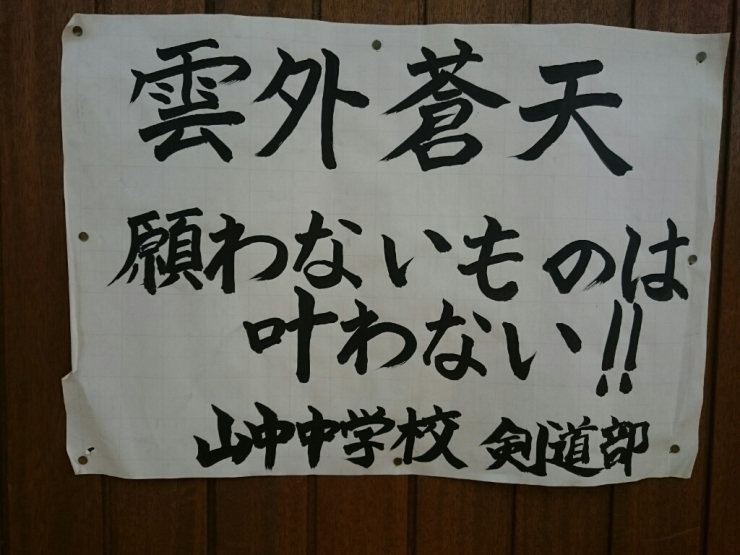 雲外蒼天
願わないものは
叶わない!!
山中中学校 剣道部